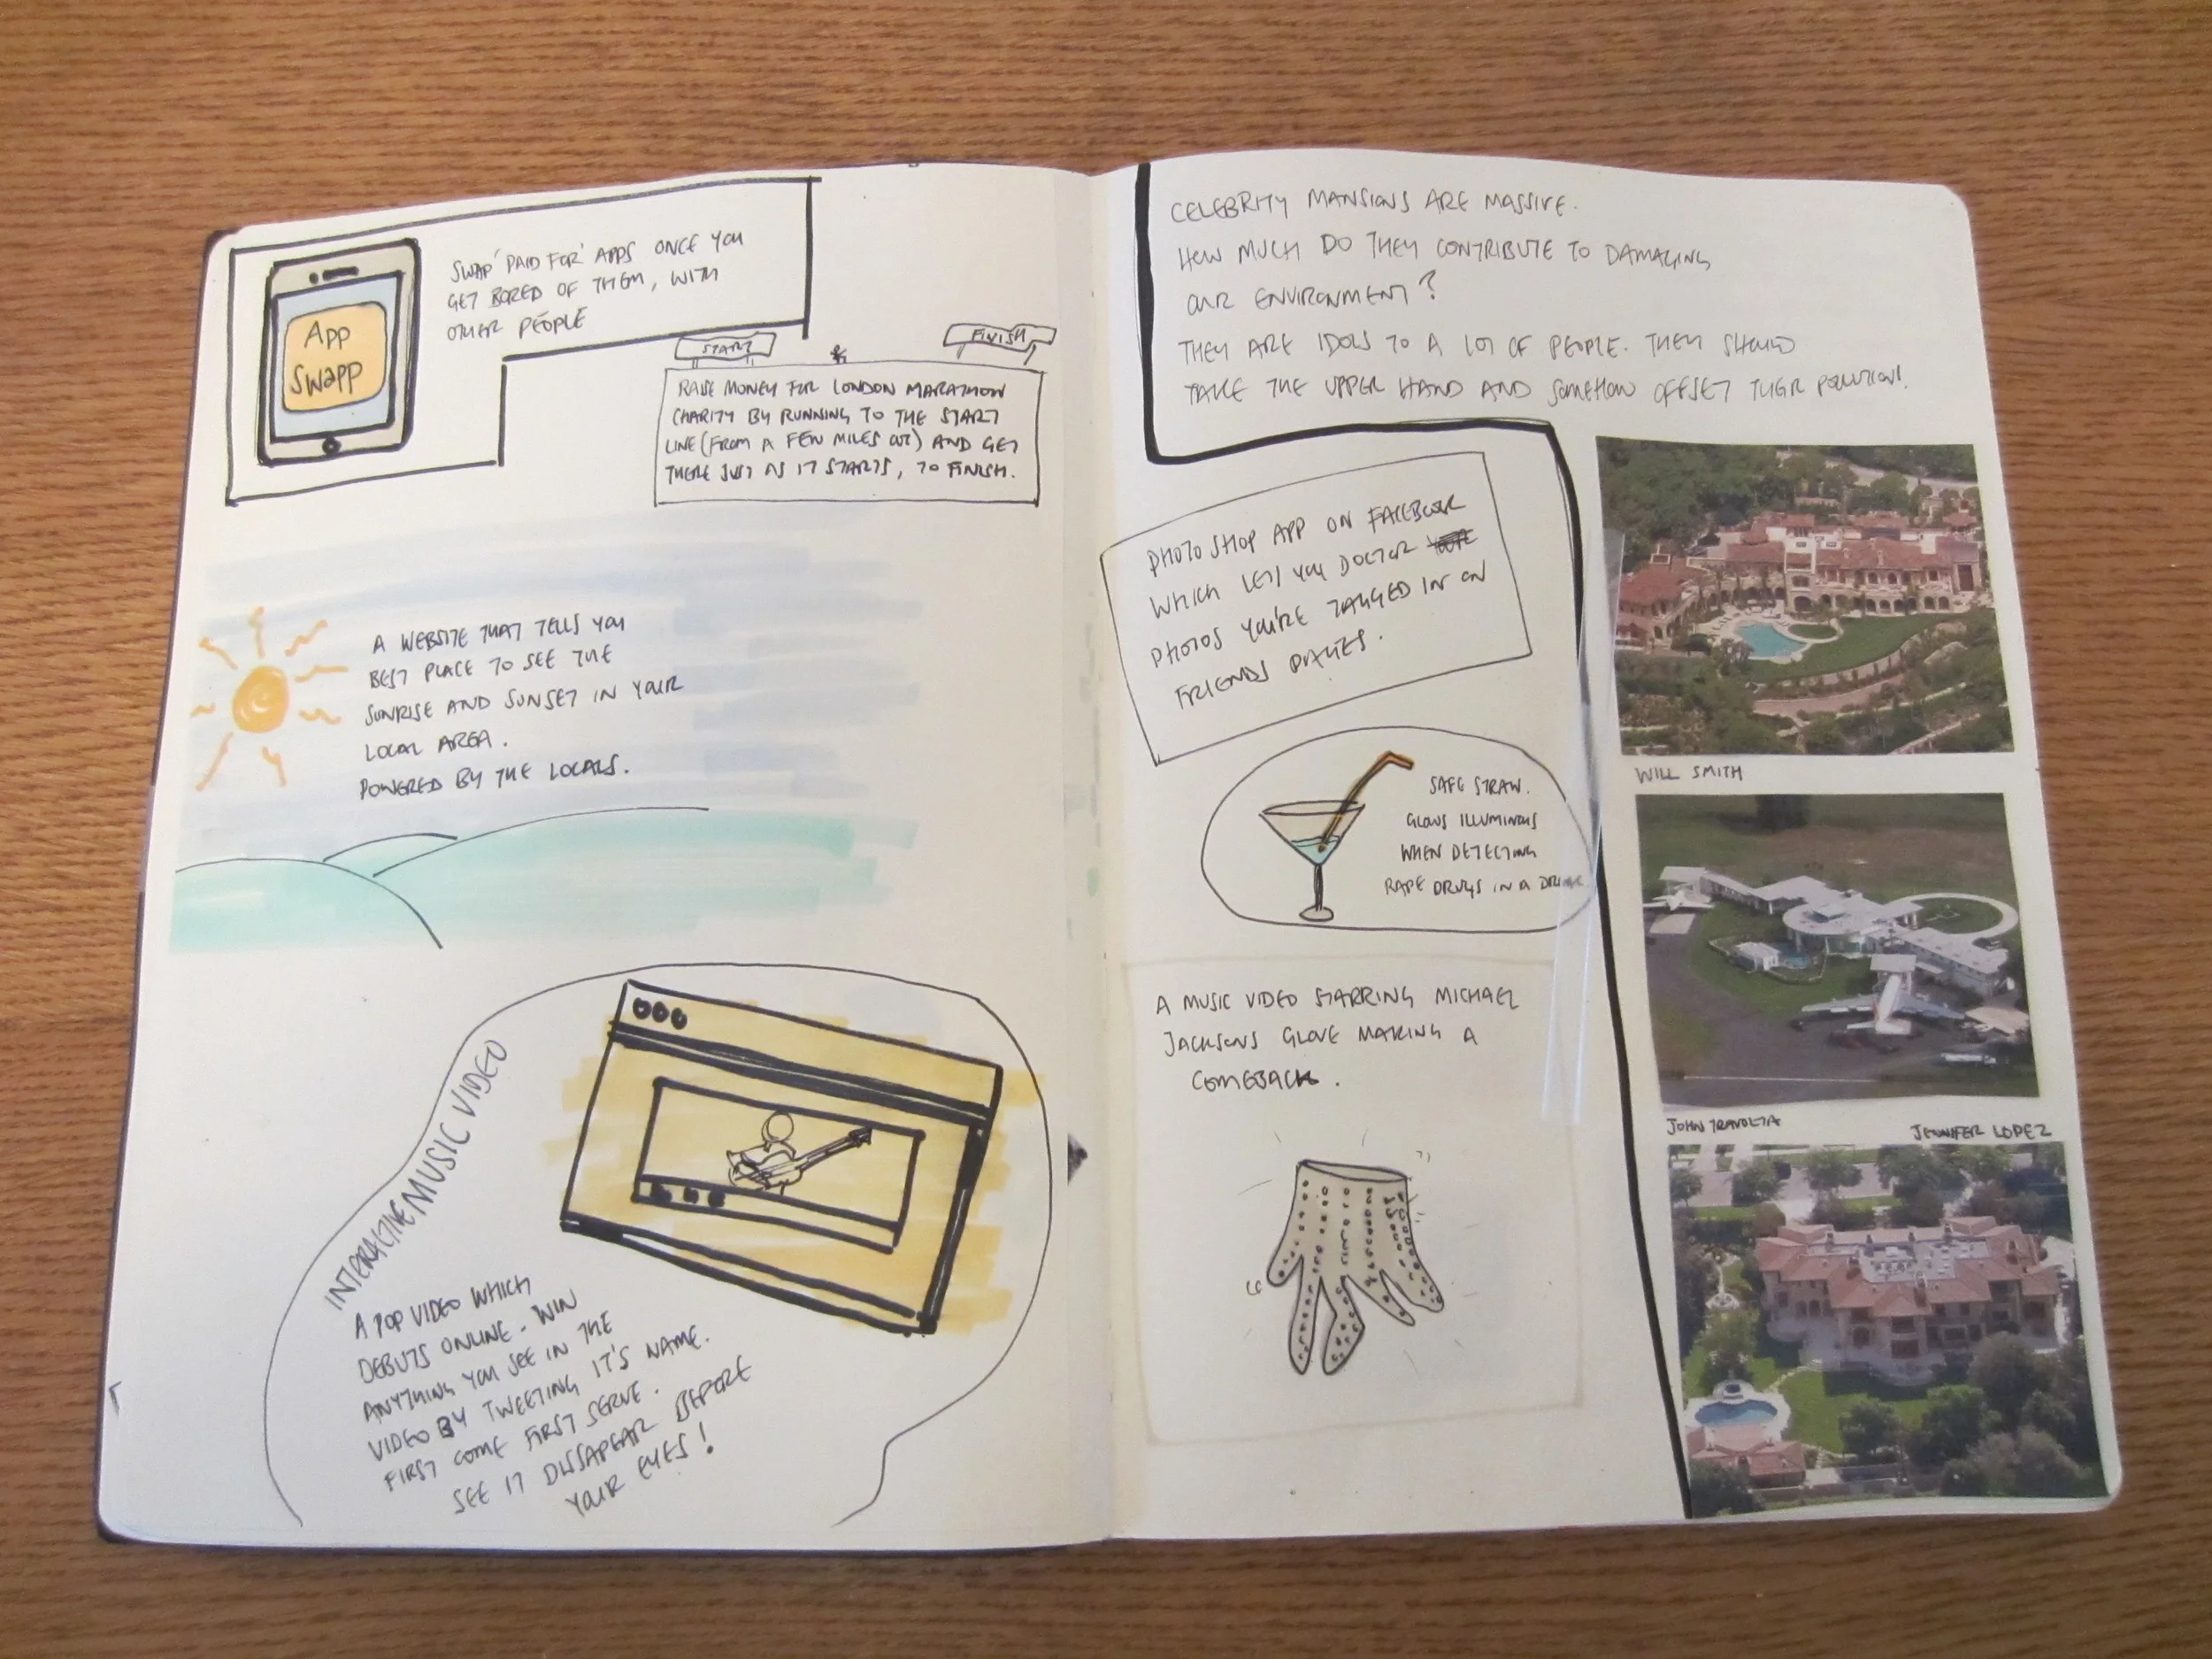 App
Swapp
SWAP 'PAID FOR' APPS ONCE YOU
GET BORED OF THEM, WITH
OTHER PEOPLE
START
FINISH
RAISE MONEY FOR LONDON MARATHON
CHARITY BY RUNNING TO THE START
LINE (FROM A FEW MILES OUT) AND GET
THERE JUST AS IT STARTS, TO FINISH.
A WEBSITE THAT TELLS YOU
BEST PLACE TO SEE THE
SUNRISE AND SUNSET IN YOUR
LOCAL AREA.
POWERED BY THE LOCALS.
INTERACTIVE MUSIC VIDEO
A POP VIDEO WHICH
DEBUTS ONLINE. WIN
ANYTHING YOU SEE IN THE
VIDEO BY TWEETING IT'S NAME.
FIRST COME FIRST SERVE.
SEE IT DISSAPEAR BEFORE
YOUR EYES!
CELEBRITY MANSIONS ARE MASSIVE.
HOW MUCH DO THEY CONTRIBUTE TO DAMAGING
OUR ENVIRONMENT?
THEY ARE IDOLS TO A LOT OF PEOPLE. THEY SHOULD
TAKE THE UPPER HAND AND SOMEHOW OFFSET THEIR POLLUTION.
PHOTOSHOP APP ON FACEBOOK
WHICH LETS YOU DOCTOR
PHOTOS YOU'RE TAGGED IN ON
FRIENDS PAGES.
SAFE STRAW.
GLOWS ILLUMINOUS
WHEN DETECTING
RAPE DRUGS IN A DRINK
A MUSIC VIDEO STARRING MICHAEL
JACKSONS GLOVE MAKING A
COMEBACK.
WILL SMITH
JOHN TRAVOLTA
JENNIFER LOPEZ